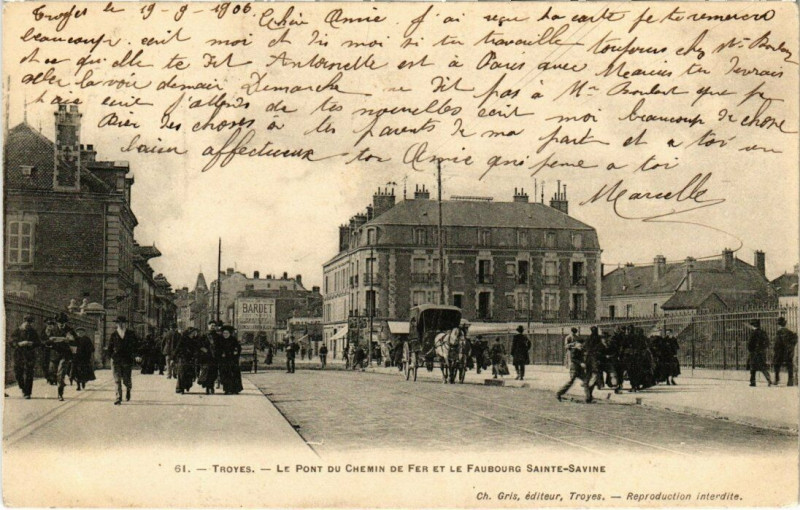 Troyes le 19-9-1906 Chère Amie j'ai reçu ta carte je te remercie
beaucoup écrit moi et dis moi si tu travaille toujours chez
et ce qu'elle te dit Antoinette est à Paris avec Marius tu devrais
aller la voir demain Dimanche ne dit pas à Mme que je
t'ai écrit j'attends de tes nouvelles écrit moi beaucoup de chose
Bien des choses à tes parents de ma part et a toi un
baiser affectueux ton Amie qui pense a toi
Marcelle
BARDET
61. — TROYES. — LE PONT DU CHEMIN DE FER ET LE FAUBOURG SAINTE-SAVINE
Ch. Gris, éditeur, Troyes. — Reproduction interdite.